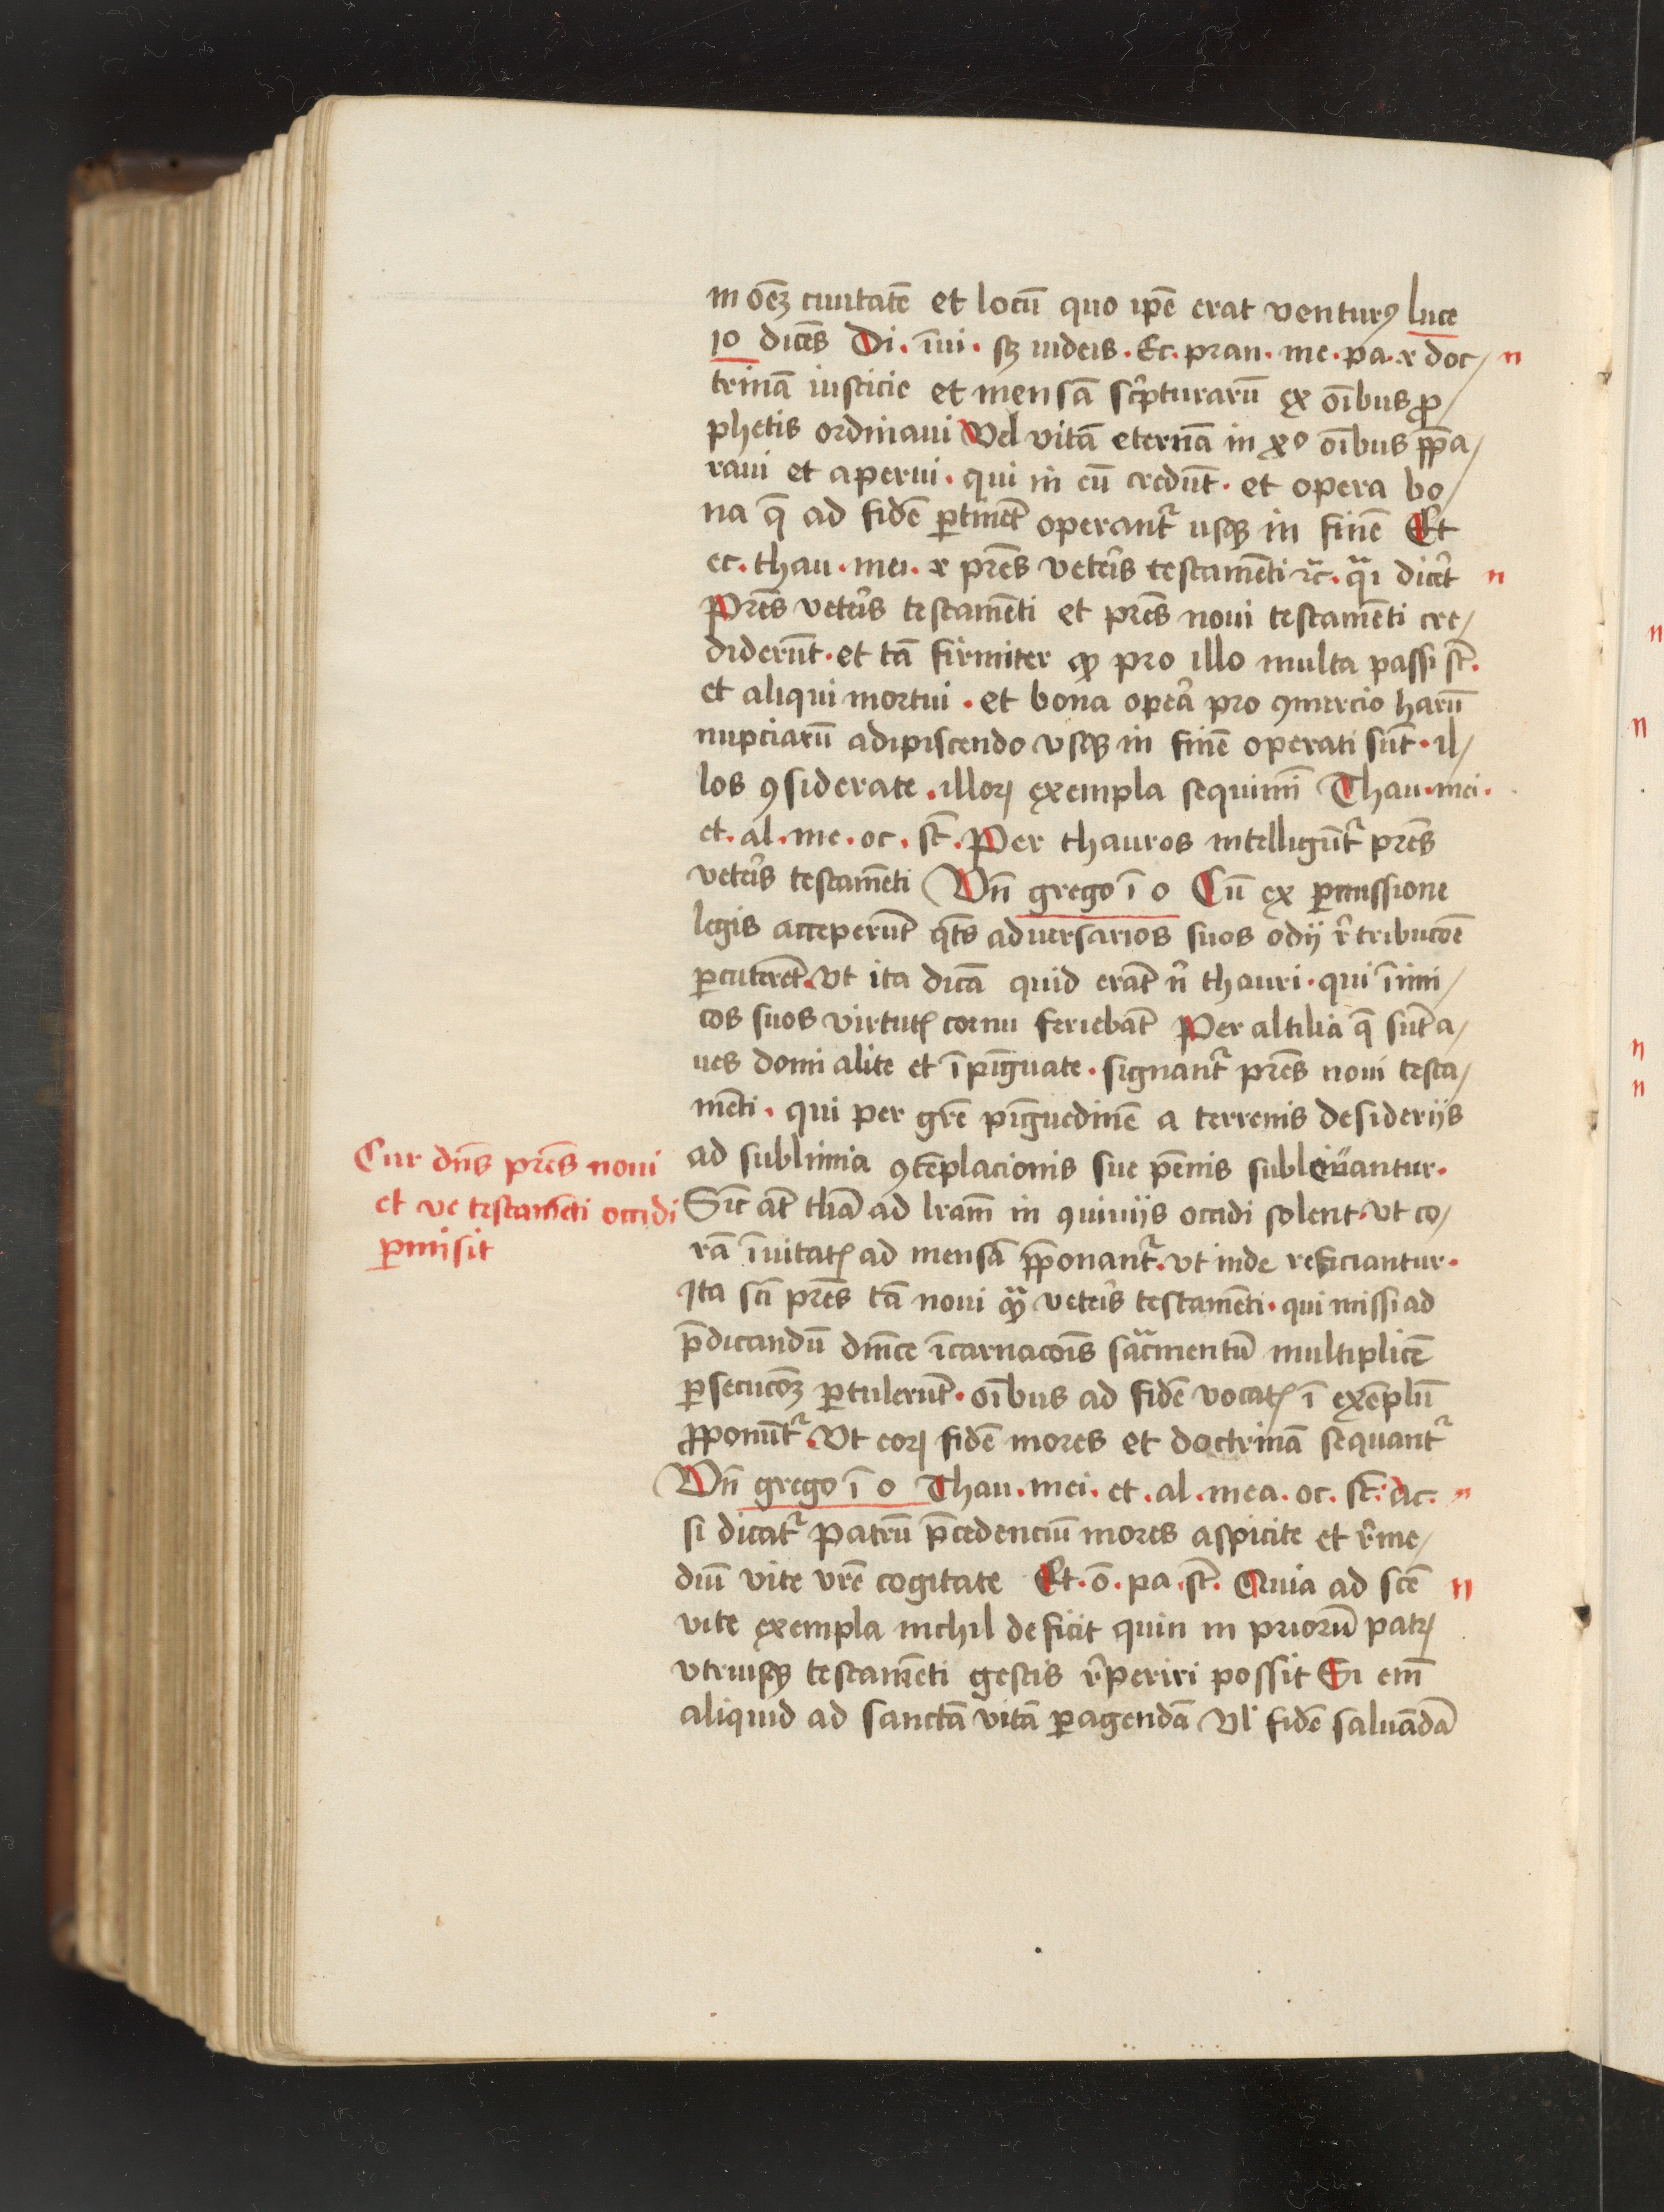 in oēꝫ ciuitatē et locū quo ip̄e erat venturꝰ luce
10 dicēs Di. īui. sꝫ iudeis. Ec. pran. me. pa. x doc/ n
trinā iusticie et mensā sc̓pturarū ex oībus ꝓ/
phetis ordinaui Vel vitā eternā in xº oībus p̄pa/
raui et aperui. qui in eū credūt. et opera bo/
na q̄ ad fidē ꝑtinēt operant᷑ usqꝫ in finē Et
ec. thau. mei. x pr̄es vet̓is testamēti ⁊c̄. qᷓi dic̓et n
Pr̄es vet̓is testamēti et pr̄es noui testamēti cre/
diderūt. et tā firmiter ꝙ pro illo multa passi st̄.
et aliqui mortui. et bona oper̄a pro ꝯmercio harū
nupciarū adipiscendo vsqꝫ in finē operati sūt. il/
los ꝯsiderate. illoꝝ exempla sequimī Thau. mei.
et. al. me. oc. st̄. Per thauros intelligūt᷑ pr̄es
vet̓is testamēti Vn̄ grego ī o Cū ex ꝑmissione
legis acceperūt q̄t̄s aduersarios suos odij r̓tribucōe
ꝑcuterēt. Vt ita dicā quid erāt n̓ thauri. qui īimi/
cos suos virtutꝭ cornu feriebāt Per altilia q̄ sūt a/
ues domi alite et īpīguate. signant᷑ pr̄es noui testa/
mēti. qui per gr̄e pīguedinē a terrenis desiderijs
Cur dn̄s pr̄es noui
et ve testamēti occidi
ꝑmisit
ad sublimia ꝯtēplacionis sue pēnis subleuantur.
Sic̄ at̄ th̄a ad lr̄am in ꝯuiuijs occidi solent. Vt co/
rā īuitatꝭ ad mensā p̄ponant᷑. Vt inde reficiantur.
Ita sc̄i pr̄es tā noui qᷓ vet̓is testamēti. qui missi ad
p̄dicandū dn̄ice īcarnacōis sac̄mentū multiplicē
ꝑsecucōꝫ ꝑtulerūt. oībus ad fidē vocatꝭ ī exēplū
ꝓponūt᷑. Vt eoꝝ fidē mores et doctrinā sequant᷑
Vn̄ grego ī o Thau. mei. et. al. mea. oc. st̄. ac. n
si dicat᷑ Patrū p̄cedenciū mores aspicite et r̓me/
diū vite vr̄e cogitate Et. ō. pa. st̄. Quia ad sc̄e n
vite exempla nichil deficit quin in priorū patꝝ
vtriusqꝫ testamēti gestis r̓periri possit Si em̄
aliquid ad sanctā vitā ꝑagendā Vl̓ fidē saluādā